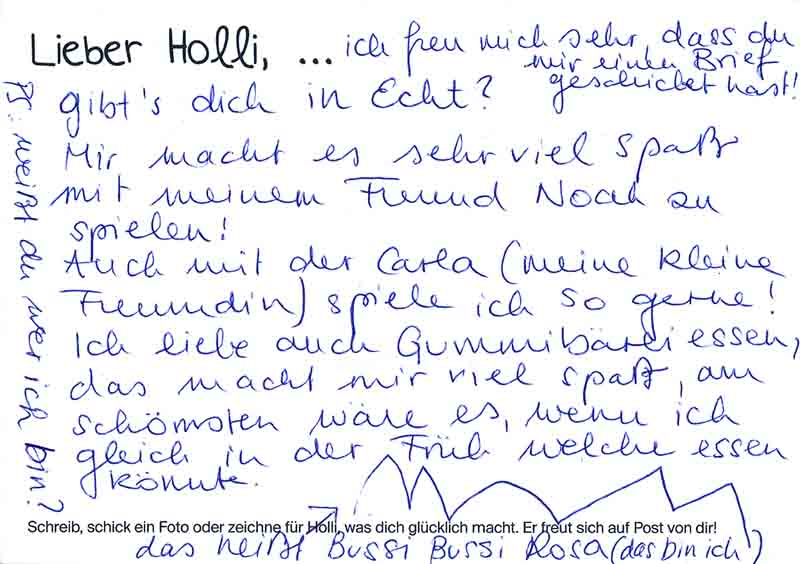 Lieber Holli, ... ich freu mich sehr, dass du
mir einen Brief
geschickt hast!
gibt's dich in Echt?
Mir macht es sehr viel spaß
mit meinem Freund Noah zu
spielen!
Auch mit der Carla (meine kleine
Freundin) spiele ich so gerne!
Ich liebe auch Gummibärli essen,
das macht mir viel spaß, am
schönsten wäre es, wenn ich
gleich in der Früh welche essen
könnte.
Schreib, schick ein Foto oder zeichne für Holli, was dich glücklich macht. Er freut sich auf Post von dir!
das heißt Bussi Bussi Rosa (das bin ich!)
PS: weißt du wer ich bin?